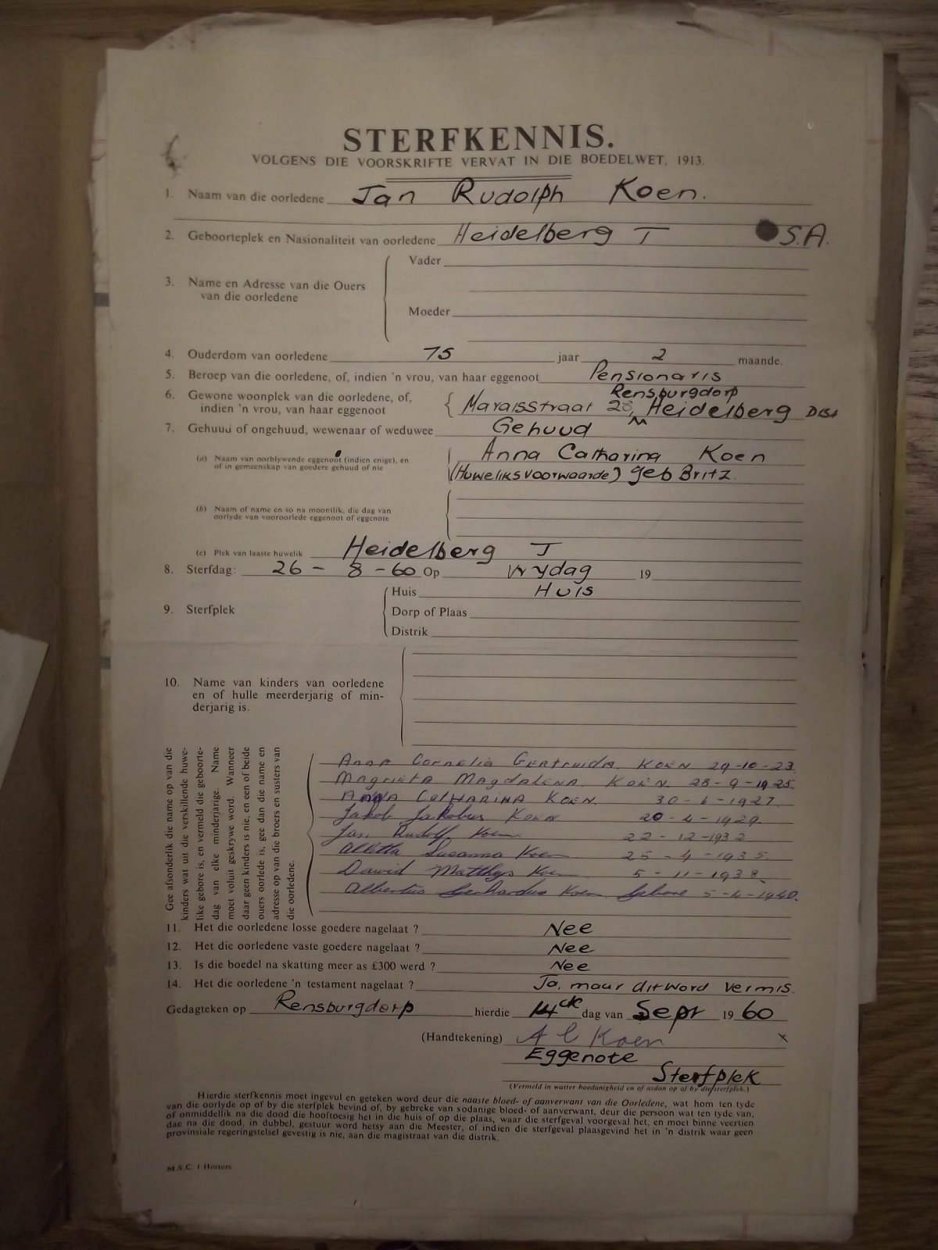 STERFKENNIS.
VOLGENS DIE VOORSKRIFTE VERVAT IN DIE BOEDELWET, 1913.
1. Naam van die oorledene Jan Rudolph Koen.
2. Geboorteplek en Nasionaliteit van oorledene Heidelberg T S.A.
Vader
3. Name en Adresse van die Ouers
van die oorledene
Moeder
4. Ouderdom van oorledene 75 jaar 2 maande.
5. Beroep van die oorledene, of, indien 'n vrou, van haar eggenoot Pensionaris
Rensburgdorp
6. Gewone woonplek van die oorledene, of,
indien 'n vrou, van haar eggenoot Maraisstraat Heidelberg
7. Gehuud of ongehuud, wewenaar of weduwee Gehuud
(a) Naam van oorblywende eggenoot (indien enige), en
of in gemeenskap van goedere gehuud of nie
Anna Catharina Koen
(Huweliksvoorwaarde) geb Britz.
(b) Naam of name en so na moontlik, die dag van
oorlyde van vooroorlede eggenoot of eggenote
(c) Plek van laaste huwelik Heidelberg T
8. Sterfdag: 26 - 8 - 60 Op Vrydag 19
Huis Huis
9. Sterfplek Dorp of Plaas
Distrik
10. Name van kinders van oorledene
en of hulle meerderjarig of min-
derjarig is.
Gee afsonderlik die name op van die
kinders wat uit die verskillende huwe-
like gebore is, en vermeld die geboorte-
dag van elke minderjarige. Name
moet voluit geskrywe word. Wanneer
daar geen kinders is nie, en een of beide
ouers oorlede is, gee dan die name en
adresse op van die broers en susters van
die oorledene.
Anna Cornelia Gertruida Koen 29-10-23
Magrieta Magdalena Koen 28-9-1925
Anna Catharina Koen 30-6-1927
Jakob Jakobus Koen 20-4-1929
Jan Rudolf Koen 22-12-1932
Aletta Susanna Koen 25-4-1935
David Matthys Koen 5-11-1938
Albertus Gerhardus Koen Gebore 5-4-1940
11. Het die oorledene losse goedere nagelaat? Nee
12. Het die oorledene vaste goedere nagelaat? Nee
13. Is die boedel na skatting meer as £300 werd? Nee
14. Het die oorledene 'n testament nagelaat? Ja, maar dit word vermis.
Gedagteken op Rensburgdorp hierdie 14de dag van Sept 19 60
(Handtekening) A C Koen
Eggenote
Sterfplek
(Vermeld in watter hoedanigheid en of aldan op al by die sterfplek.)
Hierdie sterfkennis moet ingevul en geteken word deur die naaste bloed- of aanverwant van die Oorledene, wat hom ten tyde
van die oorlyde op of by die sterfplek bevind of, by gebreke van sodanige bloed- of aanverwant, deur die persoon wat ten tyde van,
of onmiddellik na die dood die hooftoesig het in die huis of op die plaas, waar die sterfgeval voorgeval het, en moet binne veertien
dae na die dood, in dubbel, gestuur word hetsy aan die Meester, of indien die sterfgeval plaasgevind het in 'n distrik waar geen
provinsiale regeringstelsel gevestig is nie, aan die magistraat van die distrik.
M.S.C. 1 Horters